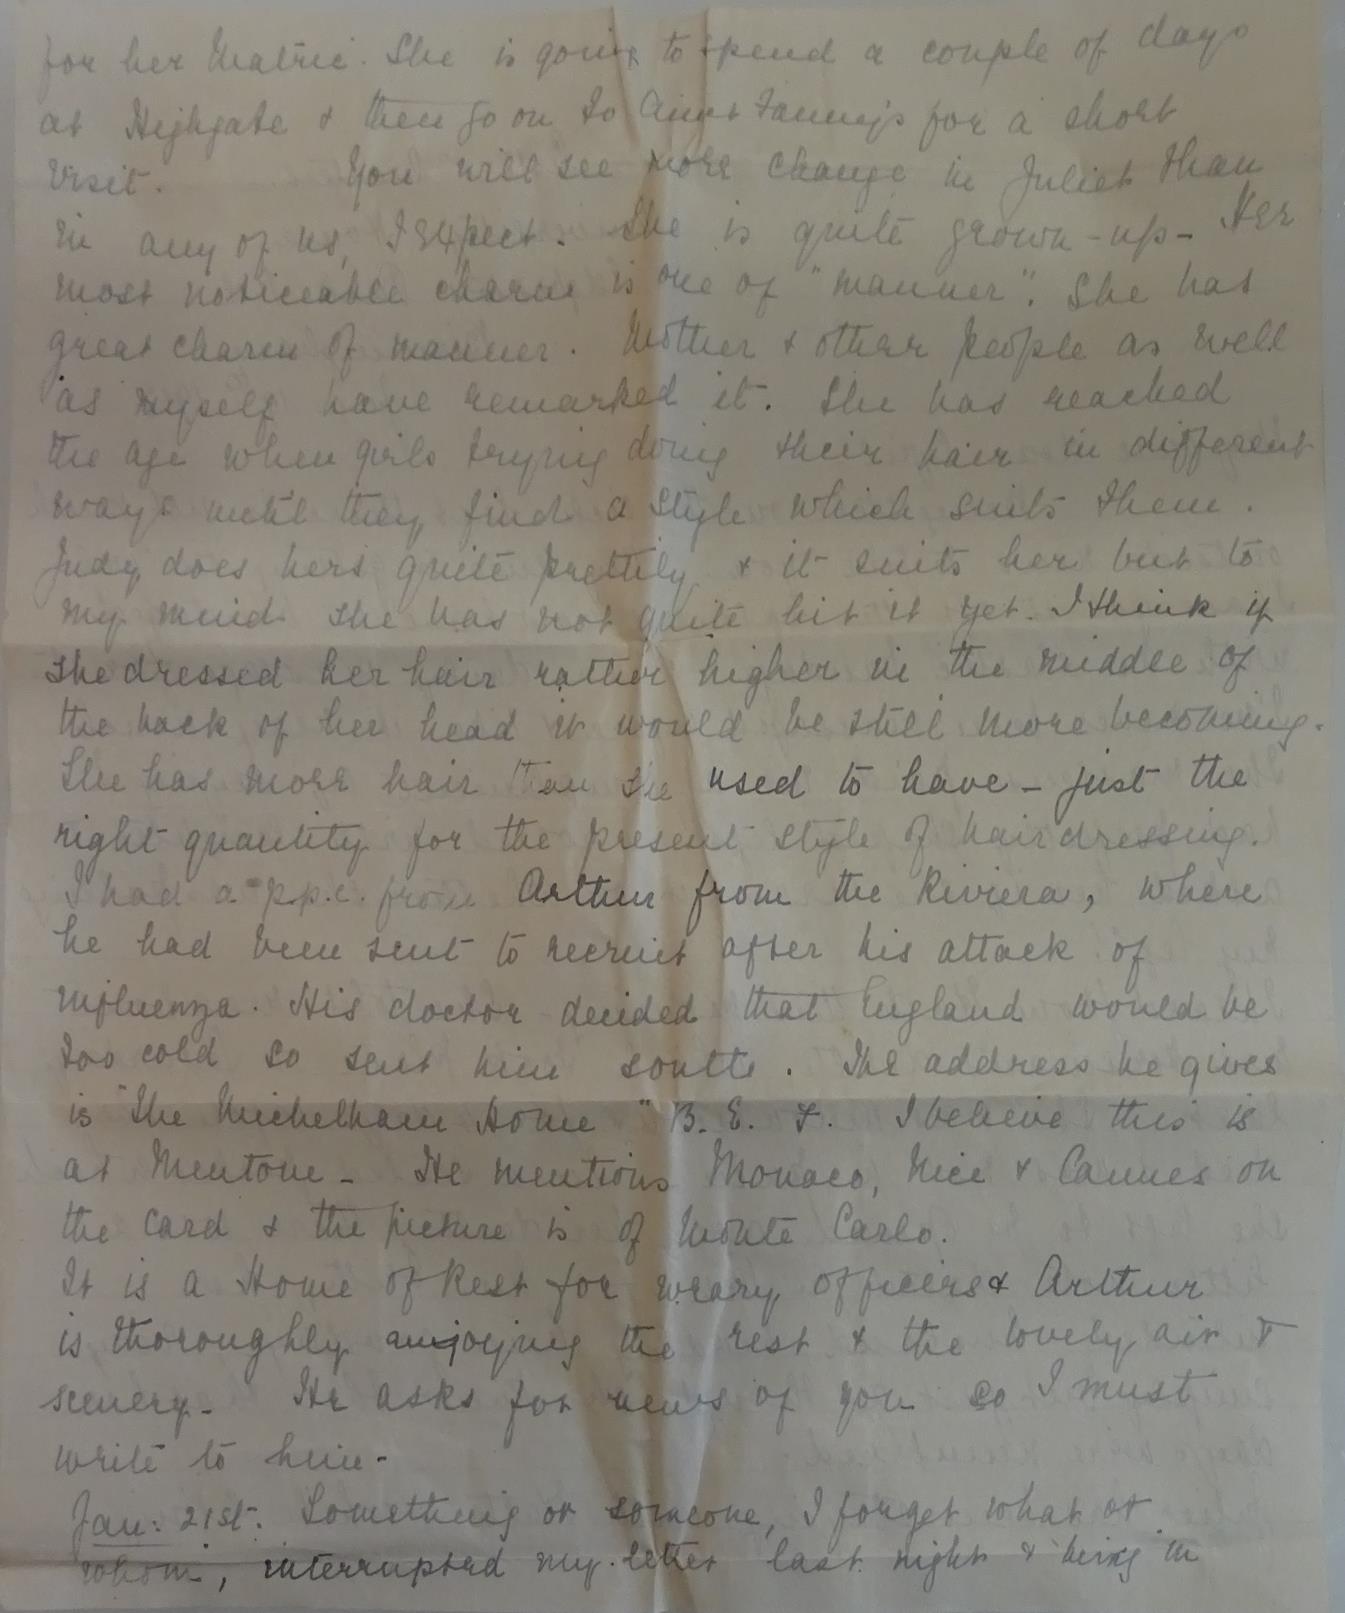 for her Matric. She is going to spend a couple of days
at Highgate & then go on to Aunt Fanny's for a short
visit. You will see more change in Juliet than
in any of us, I expect. She is quite grown-up - Her
most noticeable charm is one of "manner". She has
great charm of manner. Mother & other people as well
as myself have remarked it. She has reached
the age when girls trying doing their hair in different
ways until they find a style which suits them.
Judy does hers quite prettily & it suits her but to
my mind she has not quite hit it yet. I think if
she dressed her hair rather higher in the middle of
the back of her head it would be still more becoming.
She has more hair than she used to have - just the
right quantity for the present style of hairdressing.
I had a p.p.c. from Arthur from the Riviera, where
he had been sent to recruit after his attack of
influenza. His doctor decided that England would be
too cold so sent him south. The address he gives
is "The Michelham Home" B. E. F. I believe this is
at Mentone - He mentions Monaco, Nice & Cannes on
the card & the picture is of Monte Carlo.
It is a Home of Rest for weary officers & Arthur
is thoroughly enjoying the rest & the lovely air &
scenery - He asks for news of you so I must
write to him -
Jan: 21st. Something or someone, I forget what or
whom, interrupted my letter last night & being in